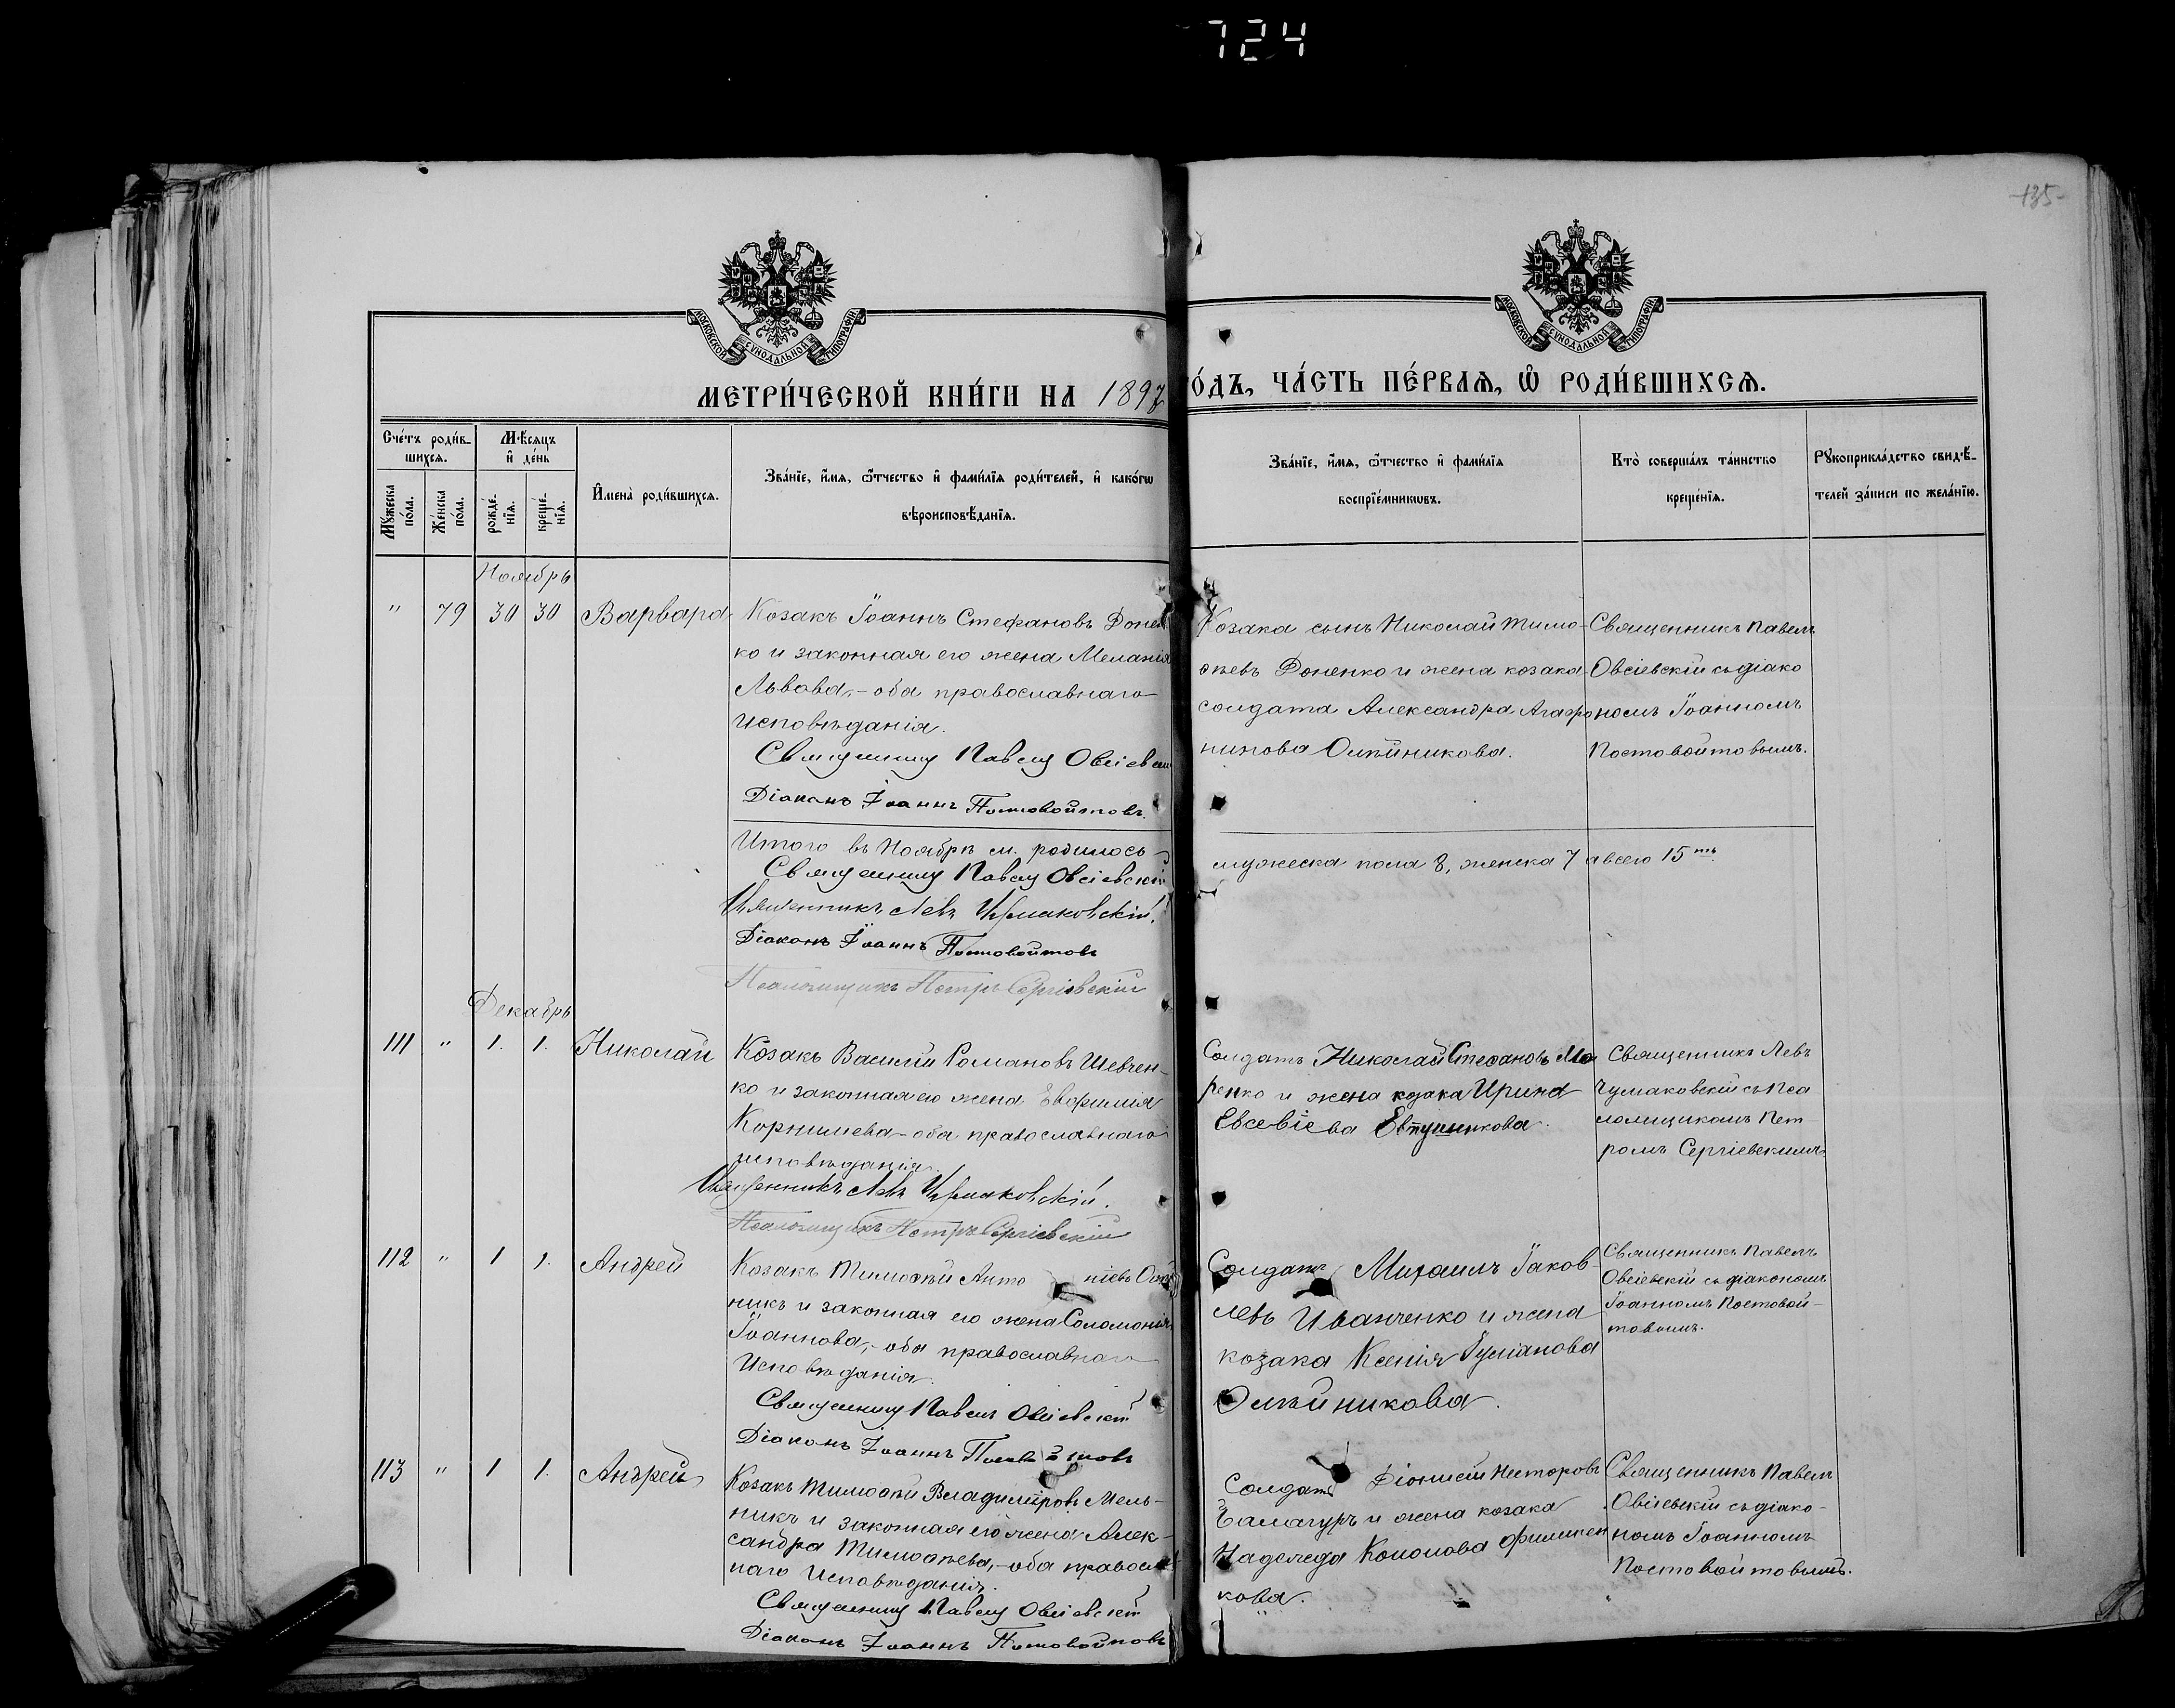 724
135
МОСКОВСКОЙ СѴНОДАЛЬНОЙ ТИПОГРАФІИ
МОСКОВСКОЙ СѴНОДАЛЬНОЙ ТИПОГРАФІИ
МЕТРИ́ЧЕСКОЙ КНИ́ГИ НА 1897
О́ДЪ, ЧА́СТЬ ПЕ́РВАѦ, Ѡ҆ РОДИ́ВШИХСѦ.
Сче́тъ роди́в-
шихсѧ.
Мѣ́сѧцъ
и҆ де́нь
Мꙋ́жеска
по́ла.
Же́нска
по́ла.
рожде́-
нїѧ.
креще́-
нїѧ.
И҆мена̀ роди́вшихсѧ.
Зва́нїе, и҆́мѧ, ѻ҆́тчество и҆ фами́лїѧ роди́телей, и҆ како́гѡ
вѣроисповѣ́данїѧ.
Зва́нїе, и҆́мѧ, ѻ҆́тчество и҆ фами́лїѧ
воспрїе́мникѡвъ.
Кто̀ соверша́лъ та́инство
креще́нїѧ.
Рꙋкоприкла́дство свидѣ́-
телей за́писи по жела́нїю.
Ноябрь
" 79 30 30 Варвара
Козакъ Іоаннъ Стефановъ Донен
ко и законная его жена Меланія
Львова,- оба православнаго
исповѣданія.
Священникъ Павелъ Овсіевскій
Діаконъ Іоаннъ Постовойтовъ.
Козака сынъ Николай Тимо-
ѳеевъ Доненко и жена козака
солдата Александра Агафо
никова Олѣйникова.
Священникъ Павелъ
Овсіевскій съ діако
номъ Іоанномъ
Постовойтовымъ.
Итого въ Ноябрѣ м. родилось
мужеска пола 8, женска 7 а всего 15тъ
Священникъ Павелъ Овсіевскій
Священникъ Левъ Чумаковскій.
Діаконъ Іоаннъ Постовойтовъ
Псаломщикъ Петръ Сергіевскій
Декабрь
111 " 1. 1. Николай
Козакъ Василій Романовъ Шевчен-
ко и законная его жена Евфимія
Корнилиева - оба православнаго
исповѣданія.
Священникъ Левъ Чумаковскій.
Псаломщикъ Петръ Сергіевскій
Солдатъ Николай Стефановъ Мо
ренко и жена козака Ирина
Евсевіева Евтушенкова.
Священникъ Левъ
Чумаковскій съ Пса
ломщикомъ Пет
ромъ Сергіевскимъ
112 " 1 1. Андрей
Козакъ Тимоѳей Анто ніевъ Олѣй
никъ и законная его жена Соломонія
Іоаннова,- оба православнаго
Исповѣданія.
Священникъ Павелъ Овсіевскій
Діаконъ Іоаннъ Постовойтовъ
Солдатъ Михаилъ Іаков-
левъ Иванченко и жена
козака Ксенія Іуліанова
Олѣйникова.
Священникъ Павелъ
Овсіевскій съ діакономъ
Іоанномъ Постовой-
товымъ.
113 " 1 1. Андрей
Козакъ Тимоѳей Владиміровъ Мель-
никъ и законная его жена Алек-
сандра Тимоѳеева,- оба правосла
наго Исповѣданія.
Священникъ Павелъ Овсіевскій
Діаконъ Іоаннъ Постовойтовъ
Солдатъ Діонисій Несторовъ
Баламутъ и жена козака
Надежда Кононова Филипен
кова.
Священникъ Павелъ
Овсіевскій съ діако-
номъ Іоанномъ
Постовойтовымъ.